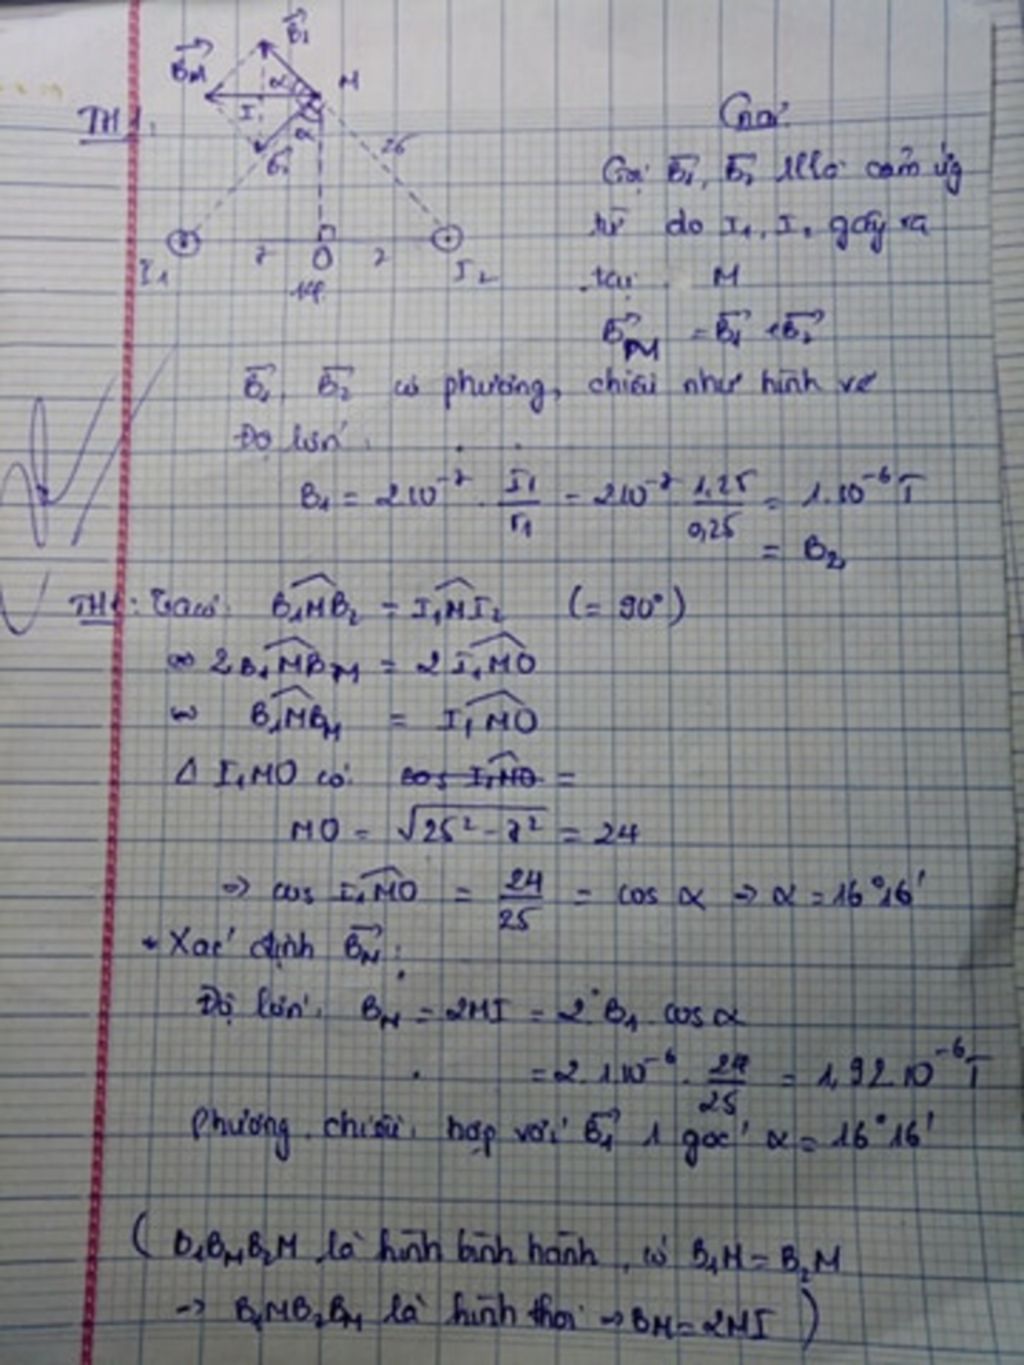 B₁
B_M
α
M
I
α
25
B₂
TH1:
I₁
7
O
7
I₂
14
Giải
Gọi B₁, B₂ là cảm ứng
từ do I₁, I₂ gây ra
tại M
B_M = B₁ + B₂
B₁, B₂ có phương, chiều như hình vẽ
Độ lớn:
B₁ = 2.10⁻⁷ . I₁/r₁ = 2.10⁻⁷ . 1,25/0,25 = 1.10⁻⁶ T
= B₂
TH1: Ta có: B₁MB₂ = I₁MI₂ (= 90°)
⇔ 2B₁MB_M = 2I₁MO
⇔ B₁MB_M = I₁MO
Δ I₁MO có: cos I₁MO =
MO = √25² - 7² = 24
⇒ cos I₁MO = 24/25 = cos α ⇒ α = 16°16'
* Xác định B_M:
Độ lớn: B_M = 2MI = 2 B₁ cos α
= 2.1.10⁻⁶ . 24/25 = 1,92.10⁻⁶ T
Phương, chiều: hợp với B₁ 1 góc α = 16°16'
( B₁B_MB₂M là hình bình hành, có B₁M = B₂M
→ B₁MB₂B_M là hình thoi → B_M = 2MI )